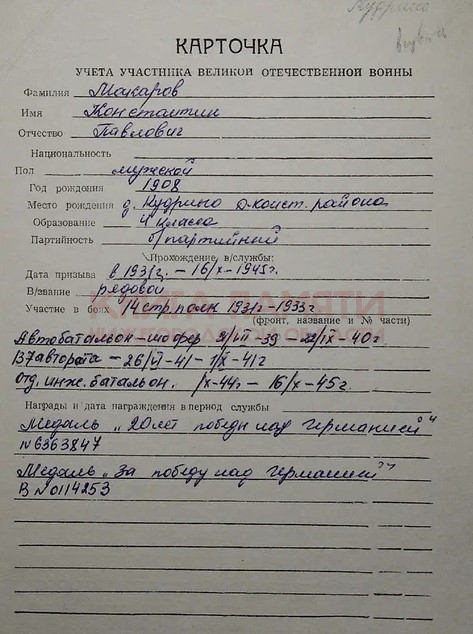 Кудрино
КАРТОЧКА
УЧЕТА УЧАСТНИКА ВЕЛИКОЙ ОТЕЧЕСТВЕННОЙ ВОЙНЫ
Фамилия Макаров
Имя Константин
Отчество Павлович
Национальность
Пол мужской
Год рождения 1908
Место рождения д. Кудрино Д-конст. района
Образование 4 класса
Партийность б/партийный
Прохождение в/службы:
Дата призыва в 1931г. – 16/X-1945г.
В/звание рядовой
Участие в боях 14 стр. полк 1931г-1933г.
(фронт, название и № части)
Автобатальон-шофер 2/VII-39 - 22/IX-40г
автората – 26/VI-41 - 1/X-41г
Отд. инж. батальон. /X-44г – 16/X-45г.
Награды и дата награждения в период службы
Медаль „20 лет победы над Германией"
N6363847
Медаль „За победу над Германией"
В N0114253
КНИГА ПАМЯТИ
НИЖЕГОРОДСКОЙ ОБЛАСТИ